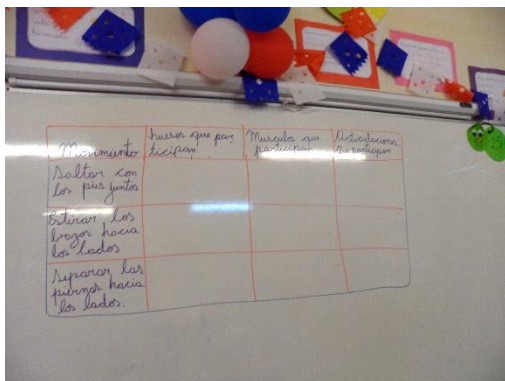 Movimiento
huesos que par-
ticipan
Musculos que
participan
Articulaciones
que participan
Saltar con
los pies juntos
Estirar los
brazos hacia
los lados
Separar las
piernas hacia
los lados.